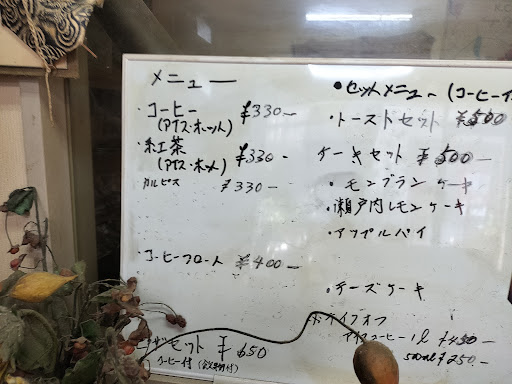 メニュー
・コーヒー ¥330-
(アイス・ホット)
・紅茶 ¥330-
(アイス・ホット)
カルピス ¥330-
・コーヒーフロート ¥400-
セット ¥650
コーヒー付
・セットメニュー (コーヒー
・トーストセット ¥500
ケーキセット ¥500-
・モンブランケーキ
・瀬戸内レモンケーキ
・アップルパイ
・チーズケーキ
アイスコーヒー 1l
500ml ¥250-